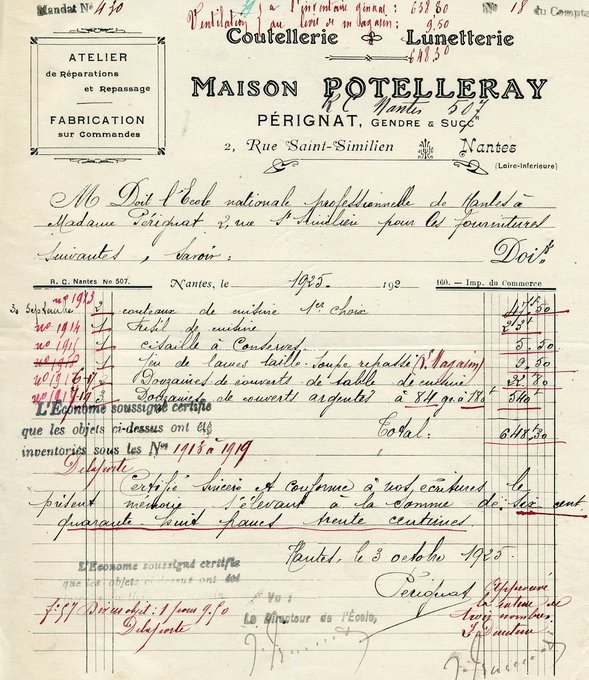 Mandat No 430
Ventilation à l'inventaire général : 638.80
au livre de magasin : 9,50
648.30
No 18 du Compte
ATELIER
de Réparations
et Repassage
FABRICATION
sur Commandes
Coutellerie Lunetterie
MAISON POTELLERAY
R C Nantes 507
PÉRIGNAT, GENDRE & SUCCR
2, Rue Saint-Similien Nantes
(Loire-Inférieure)
M Doit l'Ecole nationale professionnelle de Nantes à
Madame Pérignat 2, rue St Similien pour les fournitures
suivantes, savoir :
Doit
R. C. Nantes No 507. Nantes, le 1925. 192 160. — Imp. du Commerce
no 1913
3 Septembre 2 couteaux de cuisine 1er choix 50
no 1914 1 Fusil de cuisine
1 cisaille à Conserves 5.50
1 Jeu de lames taille-soupe repassé (Magasin) 9.50
2 Douzaines de couverts de table de cuisine 80
3 Douzaines de couverts argentés à 84 gr à 180f 540f
Total : 648.30
L'Économe soussigné certifie
que les objets ci-dessus ont été
inventoriés sous les Nos 1913 à 1919
Delaporte
Certifié Sincère et conforme à nos écritures le
présent mémoire s'élevant à la somme de : six cent
quarante huit francs trente centimes
Nantes, le 3 octobre 1925
Pérignat
L'Econome soussigné certifie
que les objets ci-dessus ont été
Vu :
Le Directeur de l'École,
1 pour 9.50
Delaporte
Approuvé
la rature de
trois nombres.